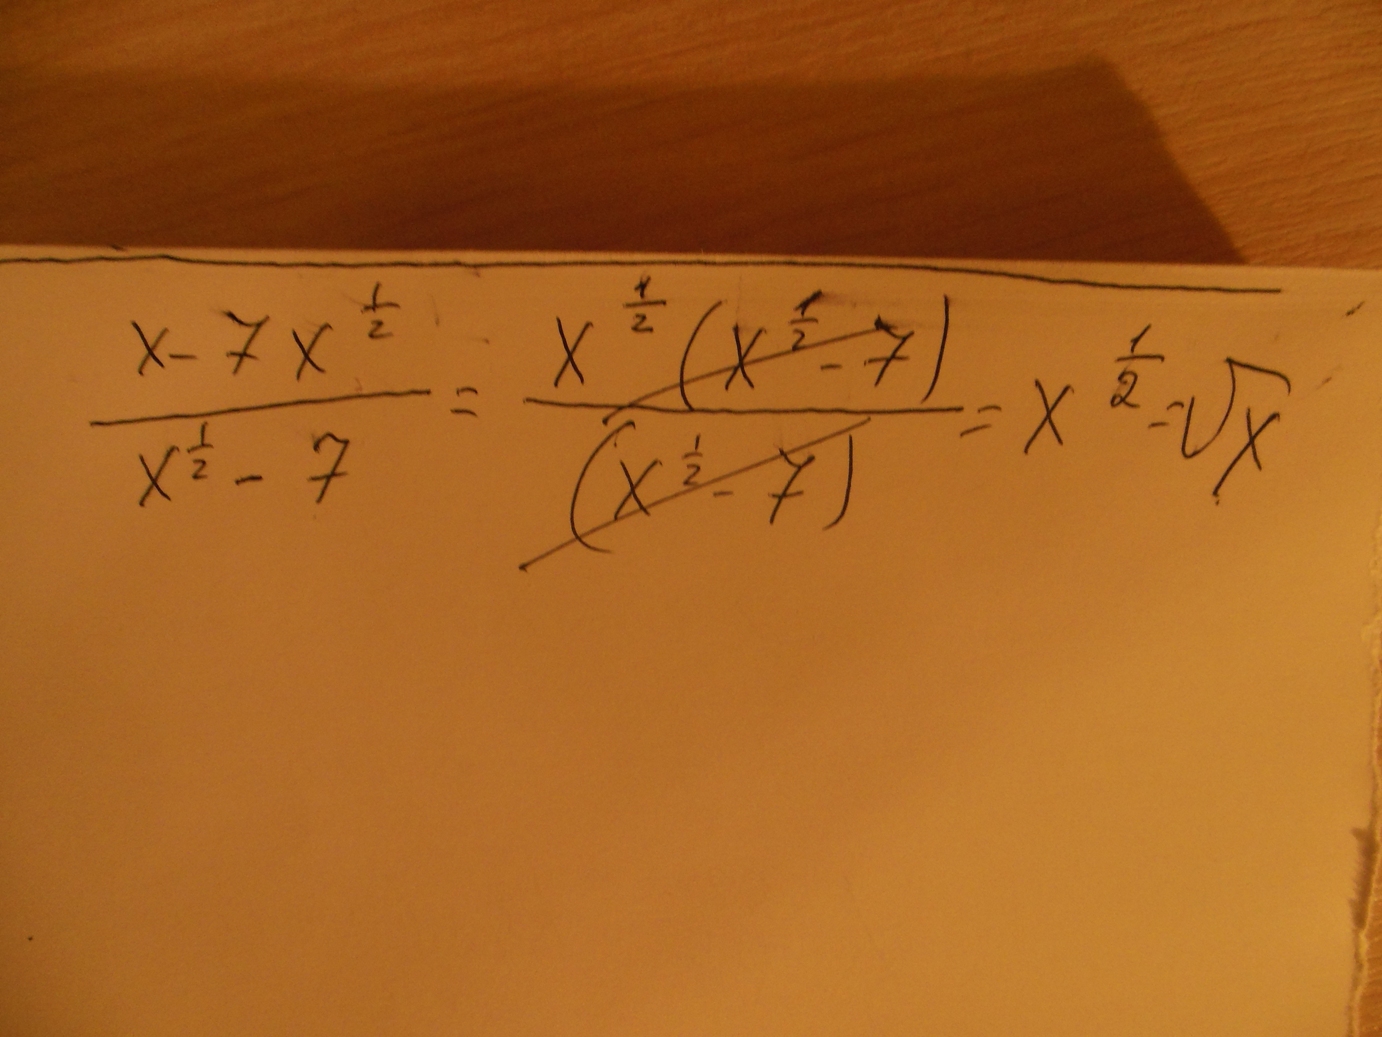 \frac{x - 7x^{\frac{1}{2}}}{x^{\frac{1}{2}} - 7} = \frac{x^{\frac{1}{2}}(x^{\frac{1}{2}} - 7)}{(x^{\frac{1}{2}} - 7)} = x^{\frac{1}{2}} = \sqrt{x}